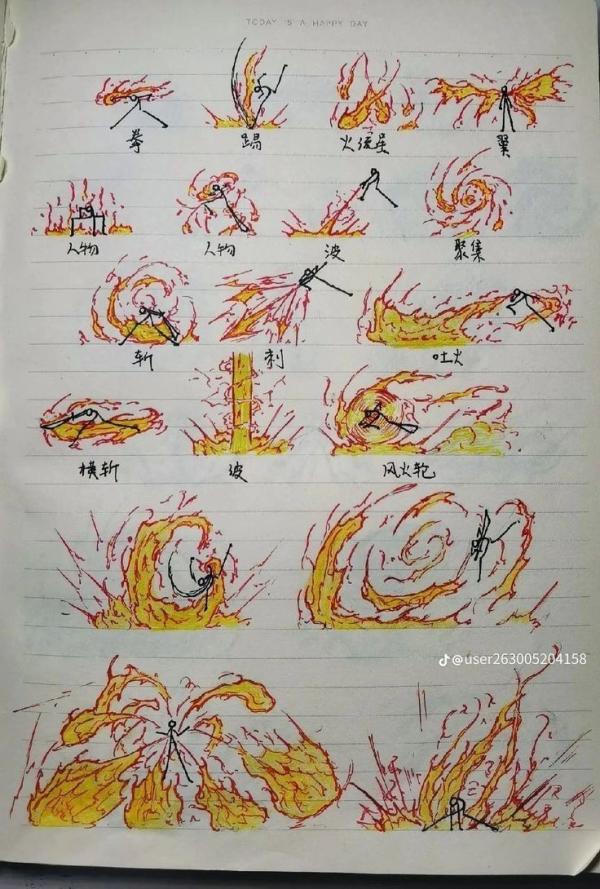 TODAY IS A HAPPY DAY
拳 踢 火流星 翼
人物 人物 波 聚集
斩 刺 吐火
横斩 波 风火轮
@user263005204158